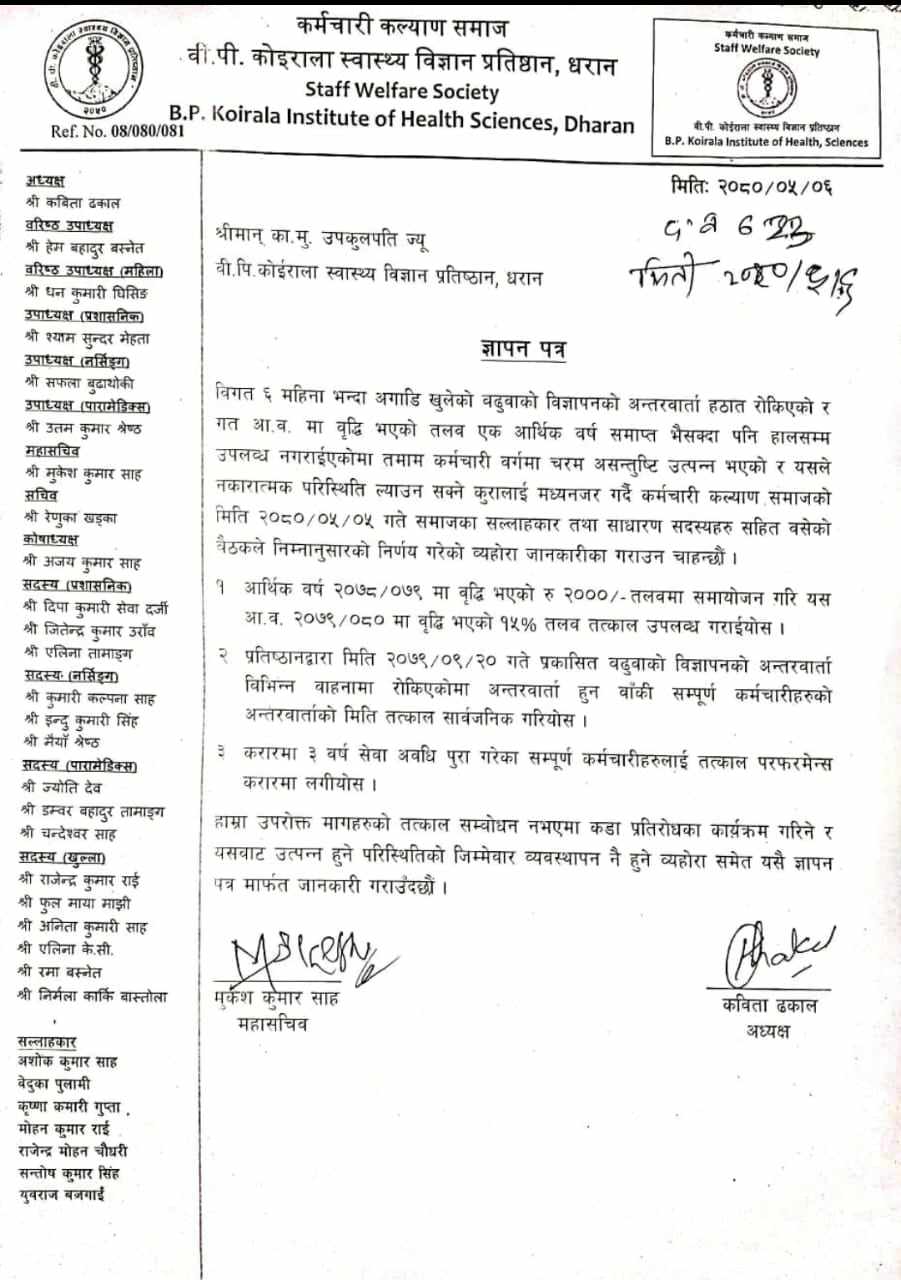 कर्मचारी कल्याण समाज
वी.पी. कोइराला स्वास्थ्य विज्ञान प्रतिष्ठान, धरान
Staff Welfare Society
B.P. Koirala Institute of Health Sciences, Dharan
Ref. No. 08/080/081
२०५०
कर्मचारी कल्याण समाज
Staff Welfare Society
वी.पी. कोईराला स्वास्थ्य विज्ञान प्रतिष्ठान
B.P. Koirala Institute of Health, Sciences
अध्यक्ष
श्री कविता ढकाल
वरिष्ठ उपाध्यक्ष
श्री हेम बहादुर बस्नेत
वरिष्ठ उपाध्यक्ष (महिला)
श्री धन कुमारी घिसिङ
उपाध्यक्ष (प्रशासनिक)
श्री श्याम सुन्दर मेहता
उपाध्यक्ष (नर्सिङ्ग)
श्री सफला बुढाथोकी
उपाध्यक्ष (पारामेडिक्स)
श्री उत्तम कुमार श्रेष्ठ
महासचिव
श्री मुकेश कुमार साह
सचिव
श्री रेणुका खड्का
कोषाध्यक्ष
श्री अजय कुमार साह
सदस्य (प्रशासनिक)
श्री दिपा कुमारी सेवा दर्जी
श्री जितेन्द्र कुमार उराँव
श्री एलिना तामाङ्ग
सदस्यः (नर्सिङ्ग)
श्री कुमारी कल्पना साह
श्री इन्दु कुमारी सिंह
श्री मैयाँ श्रेष्ठ
सदस्य (पारामेडिक्स)
श्री ज्योति देव
श्री डम्वर बहादुर तामाङ्ग
श्री चन्देश्वर साह
सदस्य (खुल्ला)
श्री राजेन्द्र कुमार राई
श्री फुल माया माझी
श्री अनिता कुमारी साह
श्री एलिना के.सी.
श्री रमा बस्नेत
श्री निर्मला कार्कि बास्तोला
सल्लाहकार
अशोक कुमार साह
वेदुका पुलामी
कृष्णा कमारी गुप्ता
मोहन कुमार राई
राजेन्द्र मोहन चौधरी
सन्तोष कुमार सिंह
युवराज बजगाईं
मितिः २०८०/०५/०६
द.नं ६२३
मिती २०८०/५/६
श्रीमान् का.मु. उपकुलपति ज्यू
वी.पि.कोईराला स्वास्थ्य विज्ञान प्रतिष्ठान, धरान
ज्ञापन पत्र
विगत ६ महिना भन्दा अगाडि खुलेको वढुवाको विज्ञापनको अन्तरवार्ता हठात रोकिएको र
गत आ.व. मा वृद्धि भएको तलव एक आर्थिक वर्ष समाप्त भैसक्दा पनि हालसम्म
उपलब्ध नगराईएकोमा तमाम कर्मचारी वर्गमा चरम असन्तुष्टि उत्पन्न भएको र यसले
नकारात्मक परिस्थिति ल्याउन सक्ने कुरालाई मध्यनजर गर्दै कर्मचारी कल्याण समाजको
मिति २०८०/०५/०५ गते समाजका सल्लाहकार तथा साधारण सदस्यहरु सहित वसेको
वैठकले निम्नानुसारको निर्णय गरेको व्यहोरा जानकारीका गराउन चाहन्छौं ।
१ आर्थिक वर्ष २०७८/०७९ मा वृद्धि भएको रु २०००/- तलवमा समायोजन गरि यस
आ.व. २०७९/०८० मा वृद्धि भएको १५% तलव तत्काल उपलव्ध गराईयोस ।
२ प्रतिष्ठानद्वारा मिति २०७९/०९/२० गते प्रकासित वढुवाको विज्ञापनको अन्तरवार्ता
विभिन्न वाहनामा रोकिएकोमा अन्तरवार्ता हुन वाँकी सम्पूर्ण कर्मचारीहरुको
अन्तरवार्ताको मिति तत्काल सार्वजनिक गरियोस ।
३ करारमा ३ वर्ष सेवा अवधि पुरा गरेका सम्पूर्ण कर्मचारीहरुलाई तत्काल परफरमेन्स
करारमा लगीयोस ।
हाम्रा उपरोक्त मागहरुको तत्काल सम्वोधन नभएमा कडा प्रतिरोधका कार्यक्रम गरिने र
यसवाट उत्पन्न हुने परिस्थितिको जिम्मेवार व्यवस्थापन नै हुने व्यहोरा समेत यसै ज्ञापन
पत्र मार्फत जानकारी गराउँदछौं ।
मुकेश कुमार साह
महासचिव
कविता ढकाल
अध्यक्ष